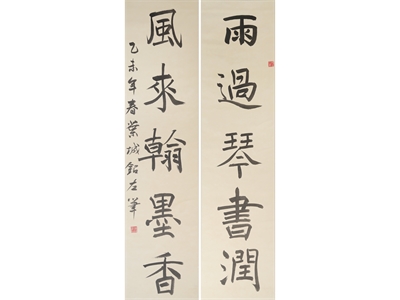 雨過琴書潤
風來翰墨香
乙未年春葉城銘左筆